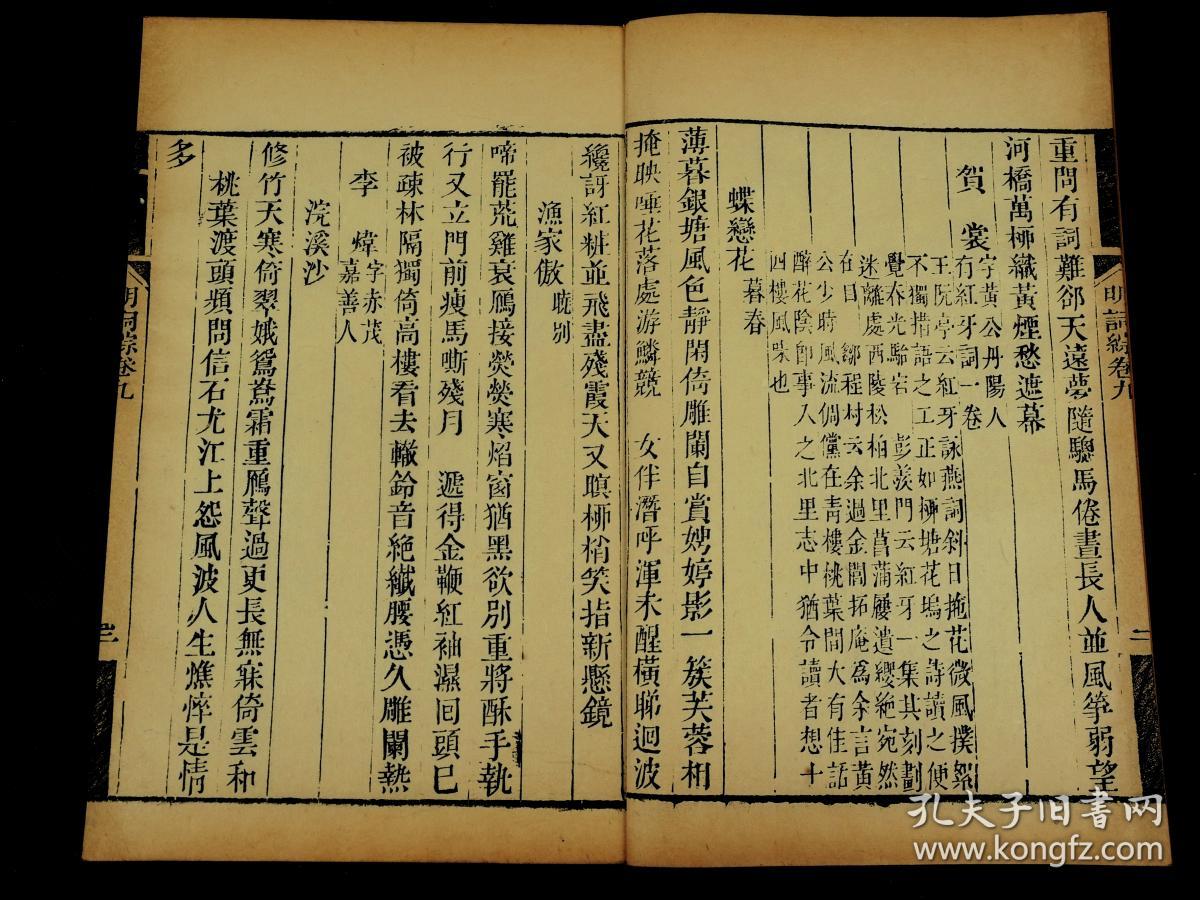 重問有詞難郤天遠夢隨驄馬倦晝長人並風箏弱望
河橋萬柳織黃煙愁遮幕
賀裳字黃公丹陽人
有紅牙詞一卷
王阮亭云紅牙詠燕詞斜日掩花微風撲絮
不獨措語之工正如柳塘花塢之詩讀之便
覺春光駘宕 彭羨門云紅牙一集其刻劃
迷離處西陵松柏北里菖蒲屨遺纓絶宛然
在目 鄒程村云余過金閶拓庵為余言黃
公少時風流倜儻在青樓桃葉間大有佳話
醉花陰卽事人之北里志中猶令讀者想十
四樓風味也
蝶戀花暮春
薄暮銀塘風色靜閑倚雕闌自賞娉婷影一簇芙蓉相
掩映唾花落處游鱗競 女伴潛呼渾未醒橫睇迴波
纔訝紅粧並飛盡殘霞天又暝柳梢笑指新懸鏡
漁家傲曉別
啼罷荒雞哀鴈接熒熒寒焰窗猶黑欲別重將酥手執
行又立門前瘦馬嘶殘月 遞得金鞭紅袖濕囘頭已
被疎林隔獨倚高樓看去轍鈴音絶纖腰憑久雕闌熱
李煒字赤茂
嘉善人
浣溪沙
修竹天寒倚翠娥鴛鴦霜重鴈聲過更長無寐倚雲和
桃葉渡頭頻問信石尤江上怨風波人生憔悴是情
多
明詞綜卷九
二
明詞綜卷九
三
孔夫子旧书网
www.kongfz.com